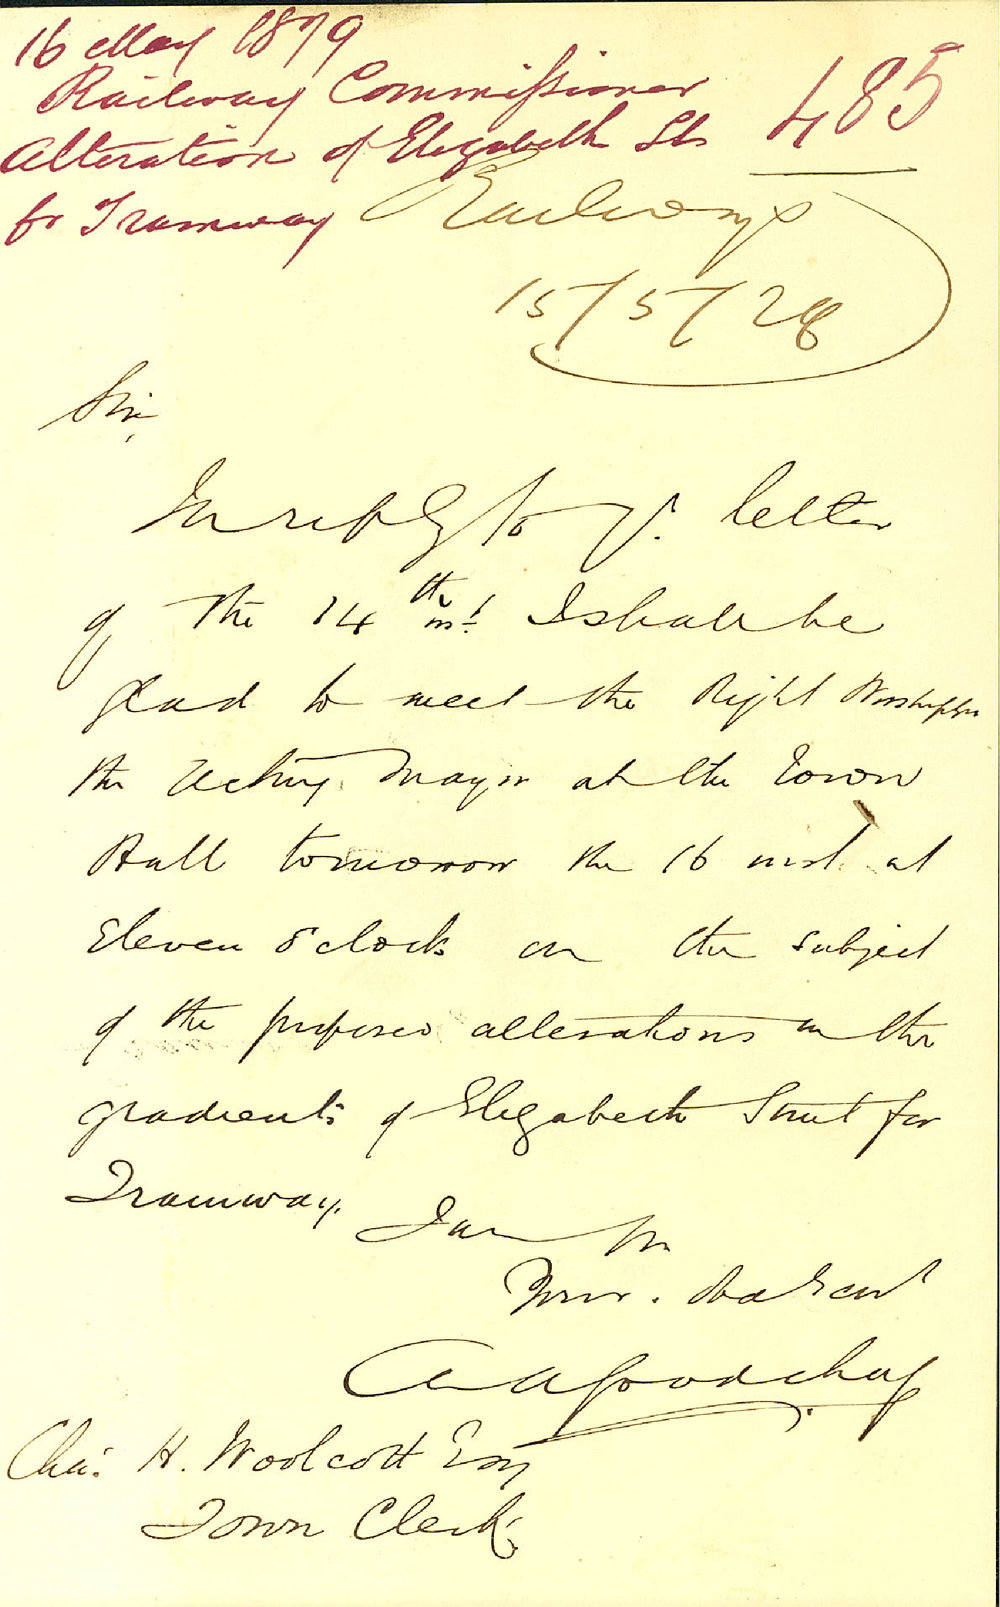 16 May 1879
Railway Commissioner
485
Alteration of Elizabeth St
for Tramway
Railways
15/5/78
Sir,
In reply to yr. letter
of the 14th inst I shall be
glad to meet the Right Worshipful
the Acting Mayor at the Town
Hall tomorrow the 16 inst. at
Eleven o'clock on the subject
of the proposed alterations in the
gradients of Elizabeth Street for
Tramway.
I am Sir
Your Obedient
Chas. A Goodchap
Chas. H. Woolcott Esq
Town Clerk